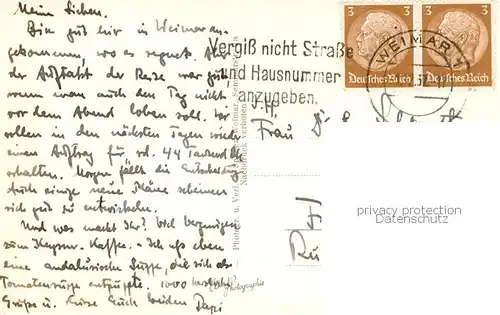 Meine Lieben.
Bin gut hier in Weimar an-
gekommen, wo es regnet. Aber
der Auftakt der Reise war gut
wenn man auch den Tag nicht
vor dem Abend loben soll. Wir
sollen in den nächsten Tagen wieder
einen Auftrag für rd. 44 Tausend
erhalten. Morgen fällt die Entscheidung
Auch einige neue Pläne scheinen
sich gut zu entwickeln.
Und was macht Ihr? Viel Vergnügen
zum Kaffee. - Ich aß eben
eine andalusische Suppe, die sich als
Tomatensuppe entpuppte. 1000 herzliche
Grüße u. Küsse Euch beiden Papi
Vergiß nicht Straße
und Hausnummer
anzugeben.
WEIMAR 1
3 3
Deutsches Reich Deutsches Reich
Frau
Photogr. u. Verl. Weimar
Nachdruck verboten
Photographie
privacy protection
Datenschutz